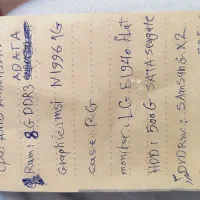 ADATA
Ram: 8G DDR3
Graphic: msi N1996 1G
case: RG
monitor: LG E1940 flat
HDD: 500G SATA seagate
DVDRW: SAMSUNG X2